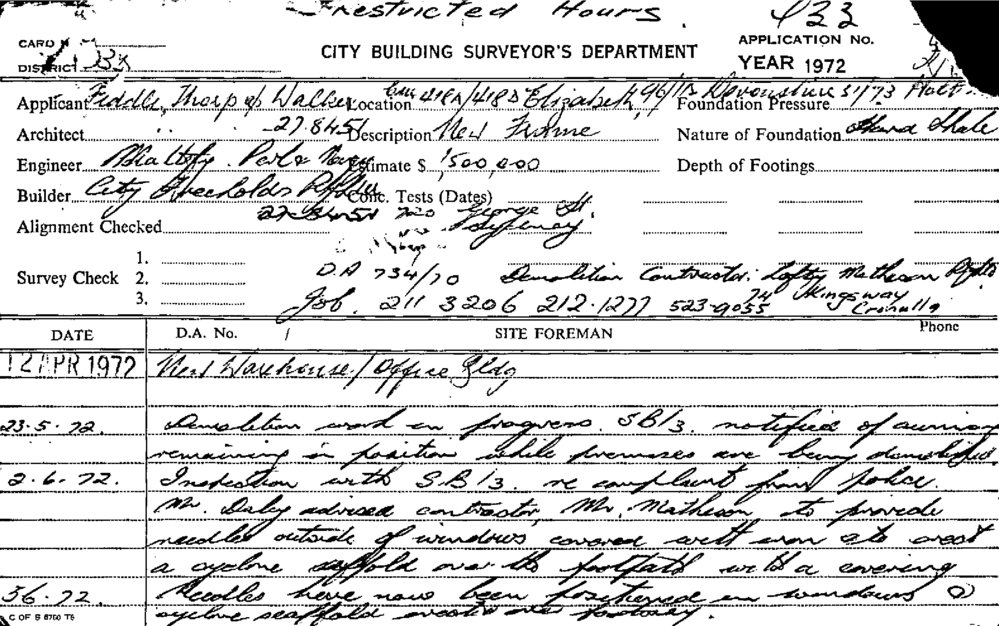 Restricted Hours
433
CARD N
APPLICATION No.
CITY BUILDING SURVEYOR'S DEPARTMENT
DISTRICT
YEAR 1972
Applicant Fiddle, Thorp & Walker Location 418A/418D Elizabeth, 96/ Devonshire St Foundation Pressure
Architect " " 27.8451 Description New Frame Nature of Foundation Hard Shale
Engineer Estimate $ 1500,000 Depth of Footings
Builder City Freeholds P/L Conc. Tests (Dates)
27-8451 720 George St.
Alignment Checked Sydney
1.
Survey Check 2. D.A 734/70 Demolition Contractor: Lofty Matheson P/L
3. Job. 211 3206 212.1277 523-9055 74 Kingsway Cronulla
DATE D.A. No. / SITE FOREMAN Phone
12 APR 1972 New Warehouse/Office Bldg
23.5.72. Demolition work in progress. SB/3. notified of awning
remaining in position while premises are being demolished.
2.6.72. Inspection with S.B/3. re complaint from police.
Mr. Daley advised contractor, Mr. Matheson to provide
needles outside of windows covered with iron & to erect
a cyclone scaffold over the footpath with a covering
5.6.72. Needles have now been positioned in windows &
cyclone scaffold erected over footway.
C OF S 8760 T5